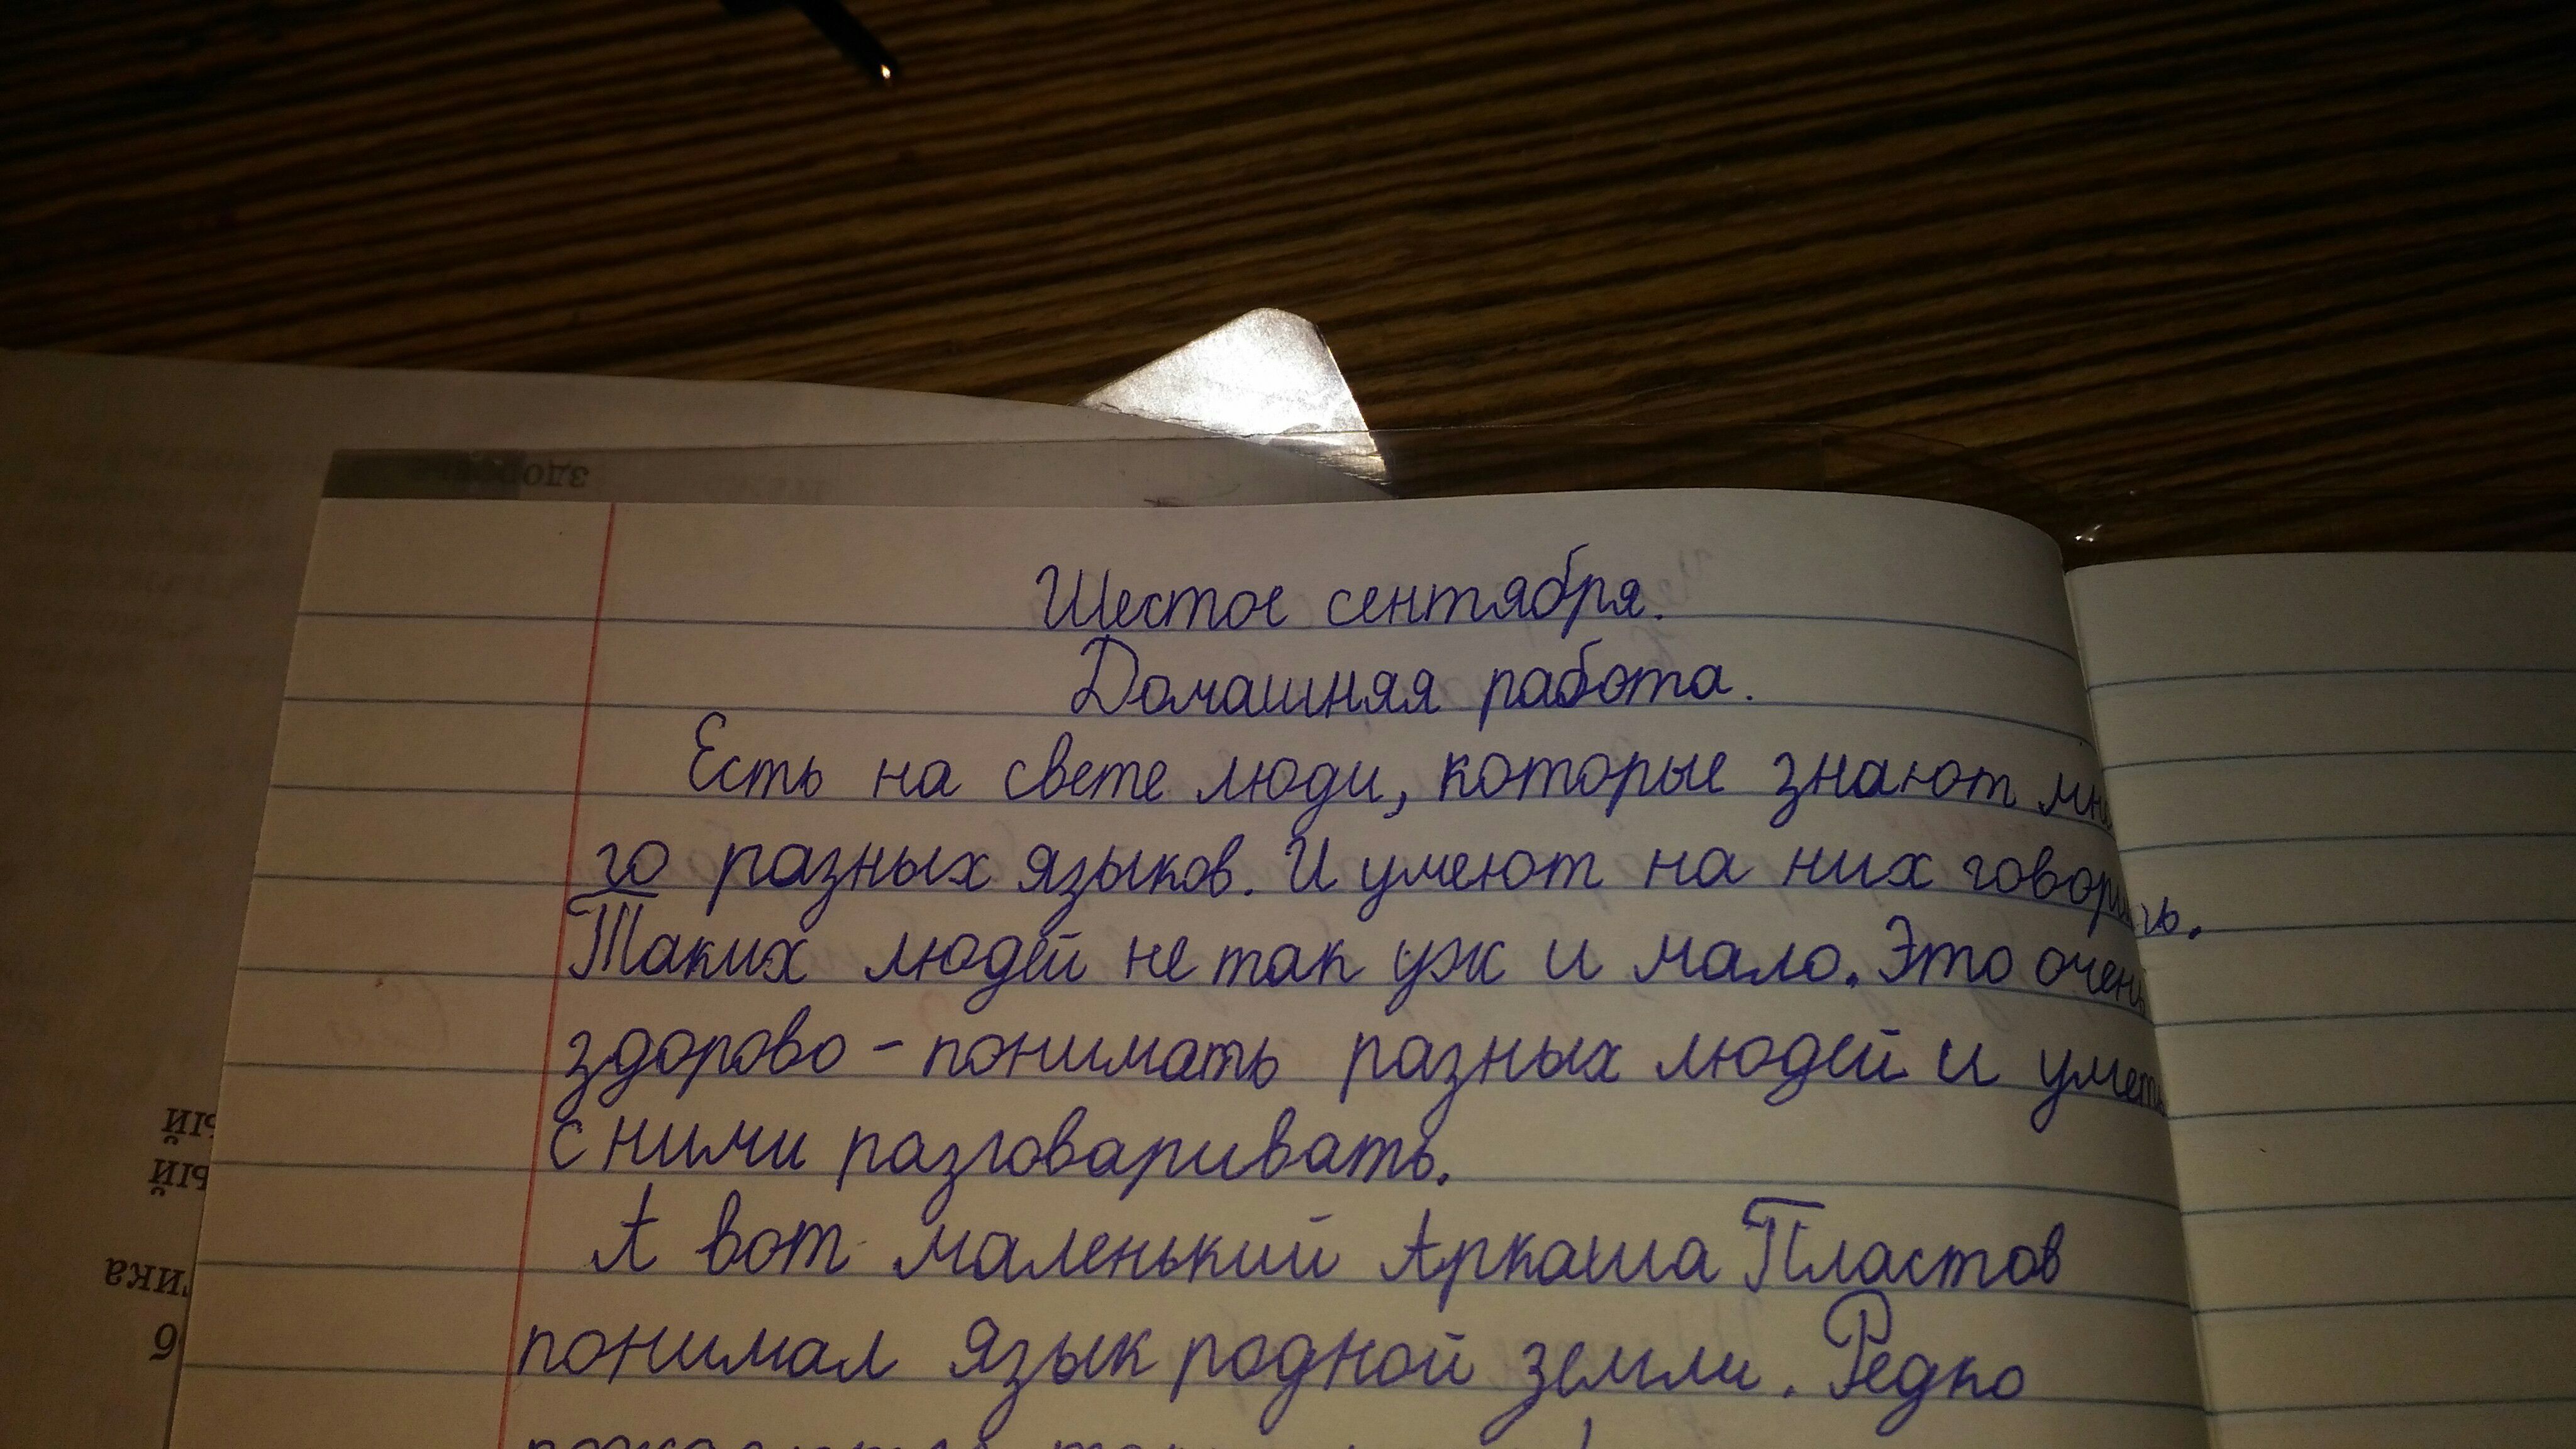 Шестое сентября.
Домашняя работа.
Есть на свете люди, которые знают мно
го разных языков. И умеют на них говорить.
Таких людей не так уж и мало. Это очень
здорово - понимать разных людей и уметь
с ними разговаривать.
А вот маленький Аркаша Пластов
понимал язык родной земли. Редко
ый
ый
тика
6